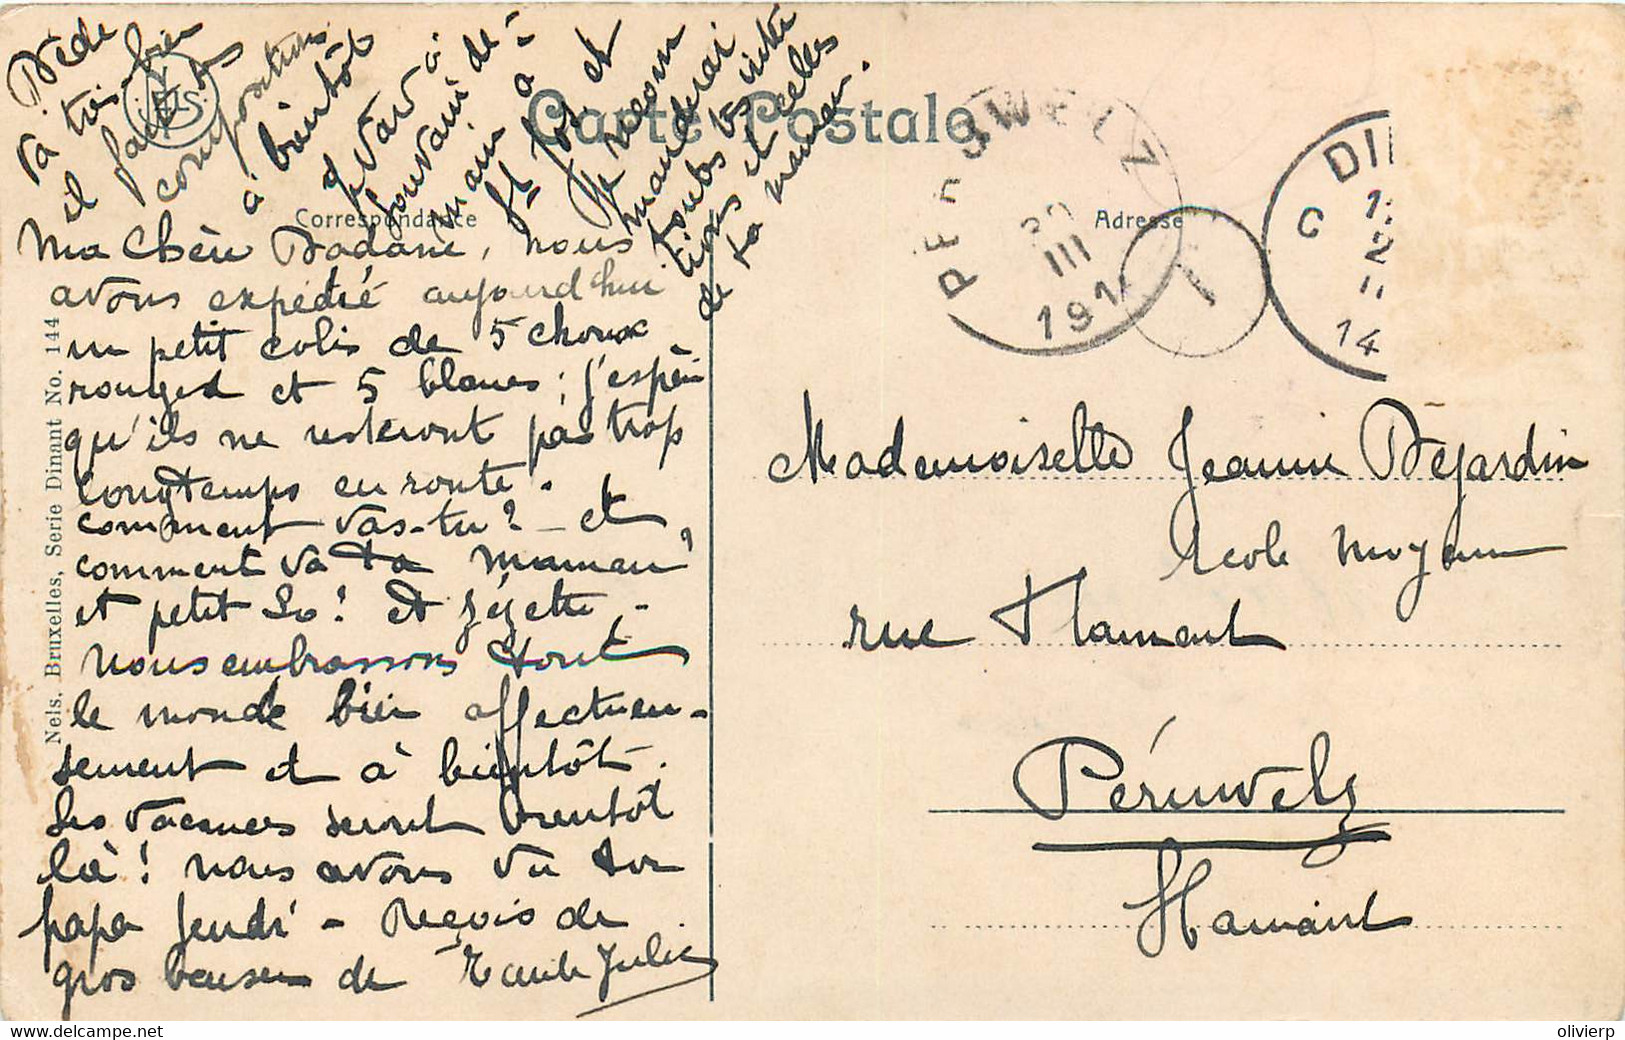 Carte Postale
Correspondance
Adresse
Nels. Bruxelles, Serie Dinant No. 144
Ma Chère Dadane, nous
avons expédié aujourd'hui
un petit colis de 5 choux
rouges et 5 blancs ; j'espère
qu'ils ne resteront pas trop
longtemps en route.
comment vas-tu ? et
comment va ta maman ?
et petit Lo ! et Zézette -
Nous embrassons tout
le monde bien affectueu-
sement et à bientôt.
Les vacances seront bientôt
là ! nous avons vu ton
papa jeudi - Reçois de
gros baisers de Tante Julie
Dède
va très bien
il fait
compositions
à bientôt
Edvard
souvenir de
main à
St Jos et
Je recom
manderai
toutes tes
tions et celles
de ta maman.
PERUWELZ
30
III
191
1
DIN
C
14
Mademoiselle Jeanne Dejardin
école moyenne
rue Flament
Péruwelz
Hainaut
olivierp